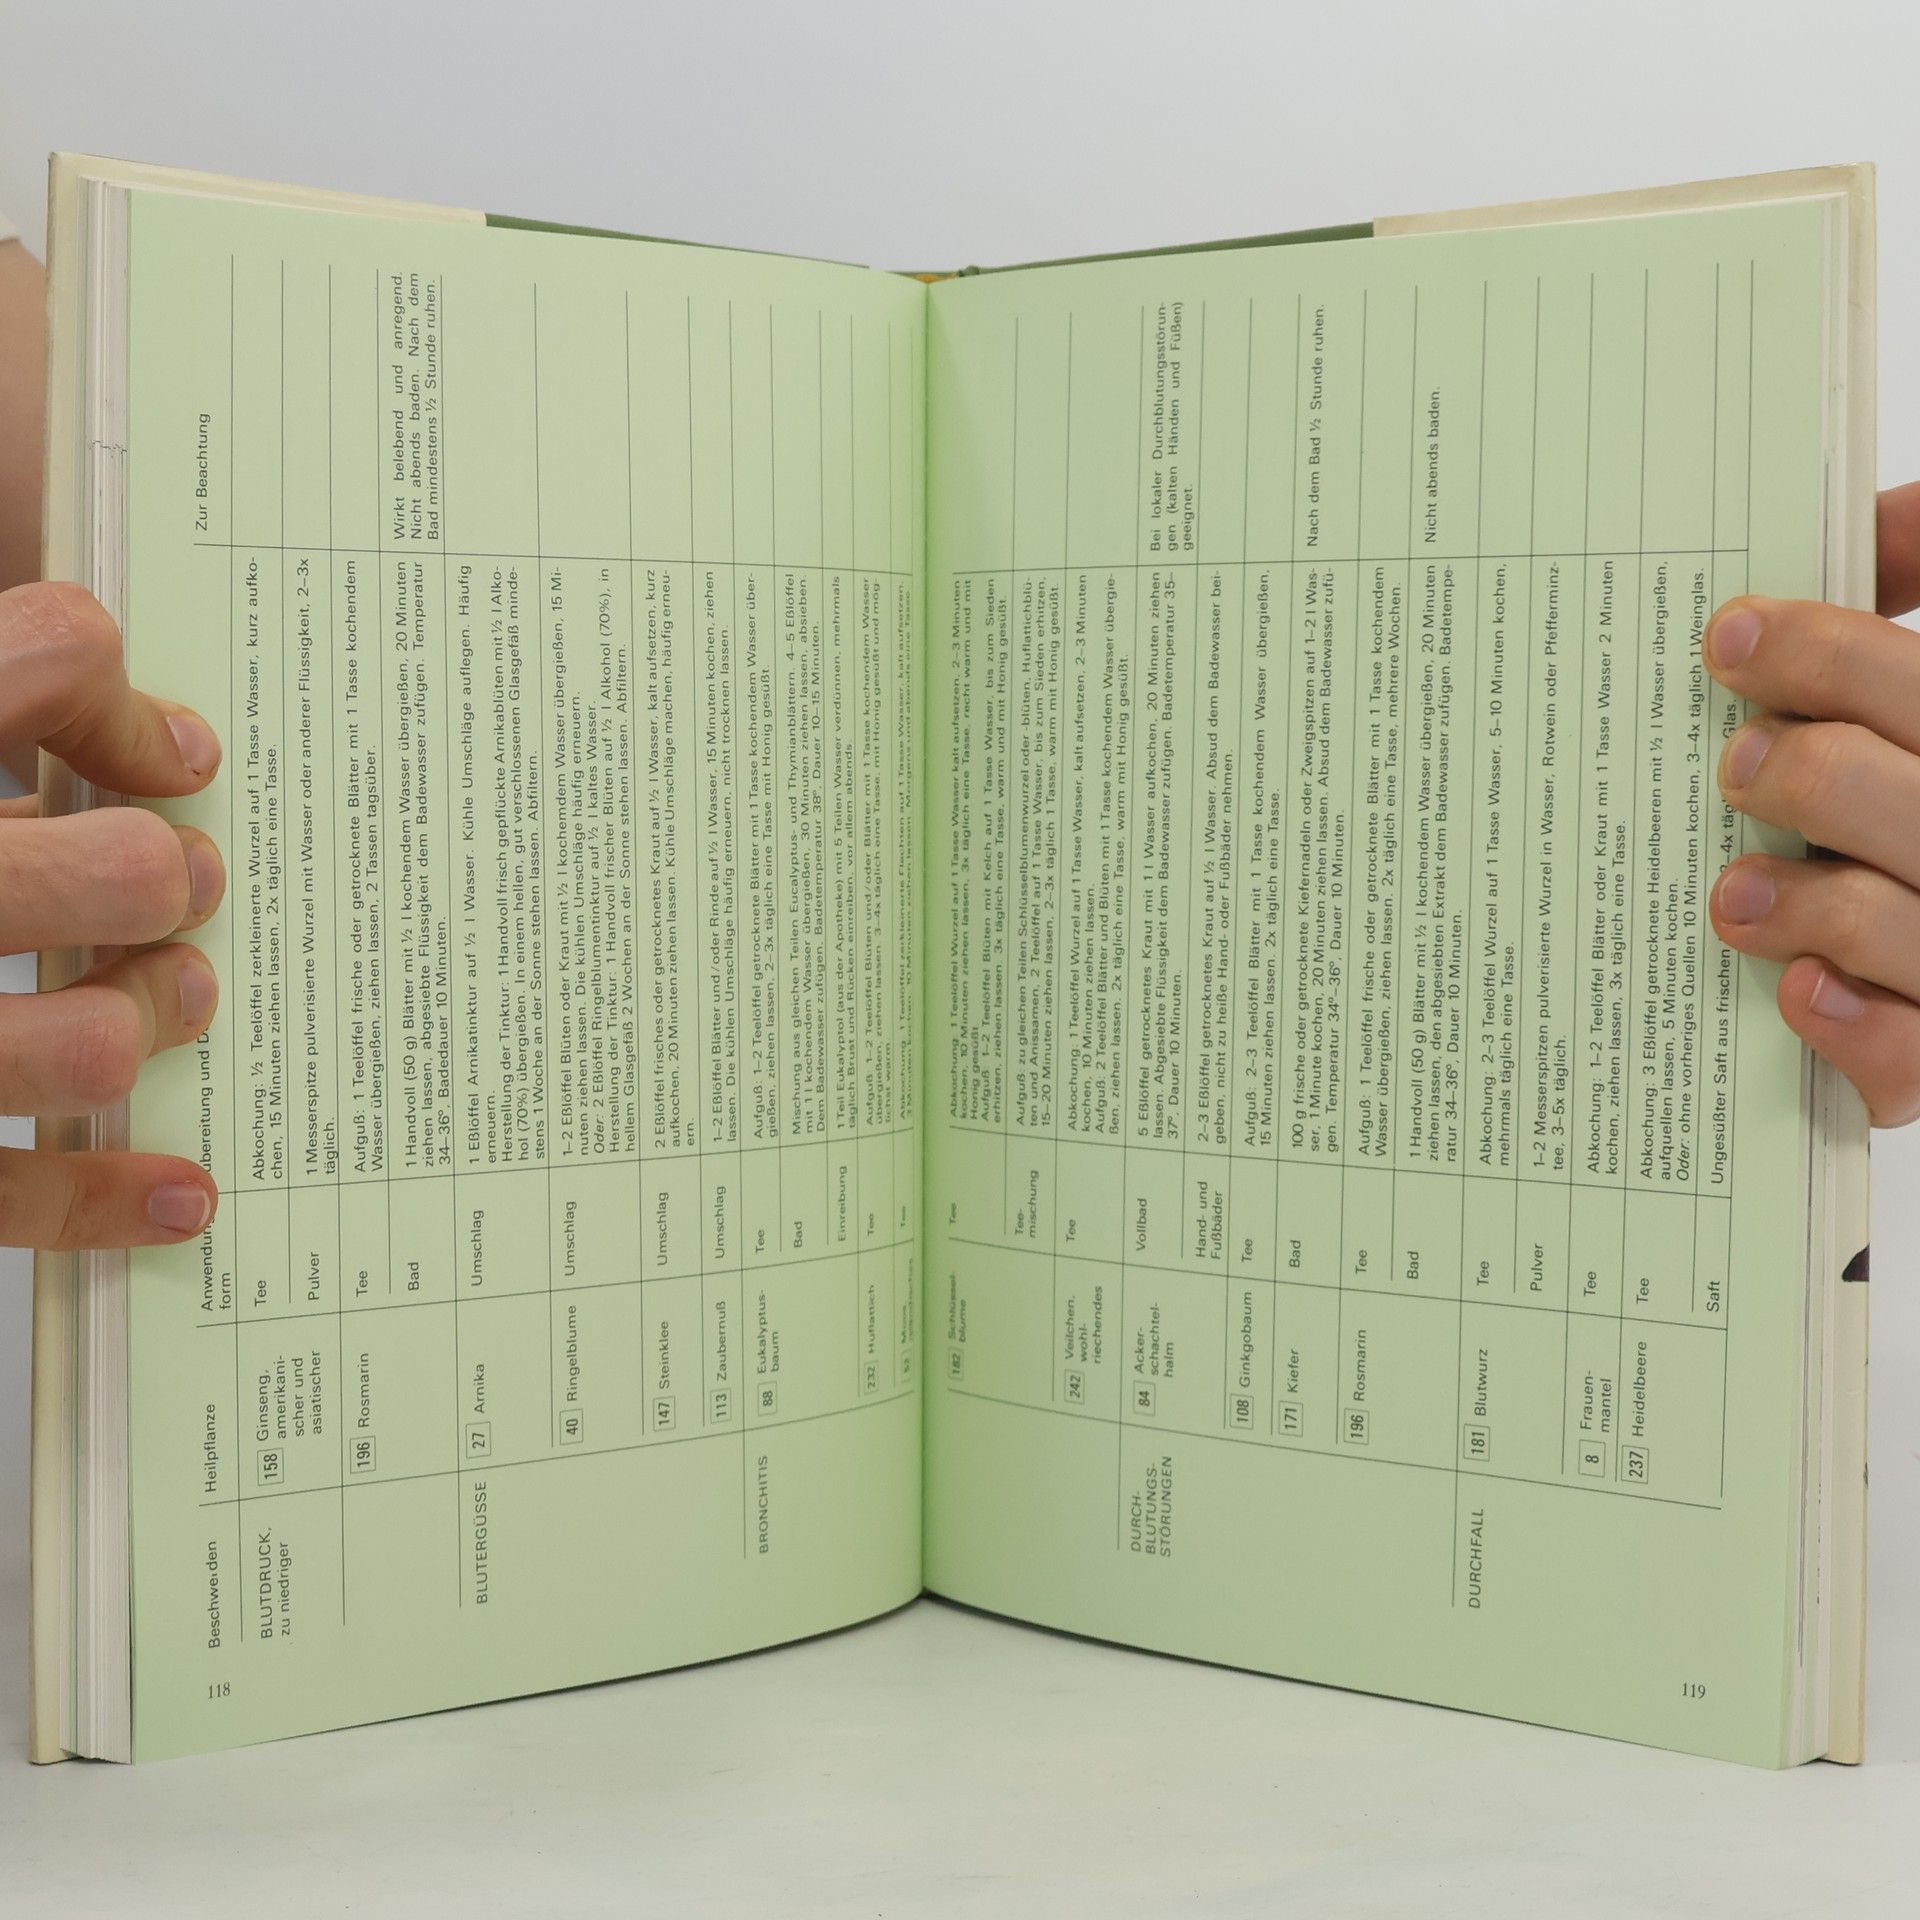 118
Beschwerden
Heilpflanze
Anwendungs-
form
Zur Beachtung
BLUTDRUCK,
zu niedriger
158 Ginseng,
amerikani-
scher und
asiatischer
Tee
Abkochung: ½ Teelöffel zerkleinerte Wurzel auf 1 Tasse Wasser, kurz aufko-
chen, 15 Minuten ziehen lassen, 2x täglich eine Tasse.
Pulver
1 Messerspitze pulverisierte Wurzel mit Wasser oder anderer Flüssigkeit, 2–3x
täglich.
196 Rosmarin
Tee
Aufguß: 1 Teelöffel frische oder getrocknete Blätter mit 1 Tasse kochendem
Wasser übergießen, ziehen lassen, 2 Tassen tagsüber.
Bad
1 Handvoll (50 g) Blätter mit ½ l kochendem Wasser übergießen, 20 Minuten
ziehen lassen, abgesiebte Flüssigkeit dem Badewasser zufügen. Temperatur
34–36°, Badedauer 10 Minuten.
Wirkt belebend und anregend.
Nicht abends baden. Nach dem
Bad mindestens ½ Stunde ruhen.
BLUTERGÜSSE
27 Arnika
Umschlag
1 Eßlöffel Arnikatinktur auf ½ l Wasser. Kühle Umschläge auflegen. Häufig
erneuern.
Herstellung der Tinktur: 1 Handvoll frisch gepflückte Arnikablüten mit ½ l Alko-
hol (70%) übergießen. In einem hellen, gut verschlossenen Glasgefäß minde-
stens 1 Woche an der Sonne stehen lassen. Abfiltern.
40 Ringelblume
Umschlag
1–2 Eßlöffel Blüten oder Kraut mit ½ l kochendem Wasser übergießen, 15 Mi-
nuten ziehen lassen. Die kühlen Umschläge häufig erneuern.
Oder: 2 Eßlöffel Ringelblumentinktur auf ½ l kaltes Wasser.
Herstellung der Tinktur: 1 Handvoll frischer Blüten auf ½ l Alkohol (70%), in
hellem Glasgefäß 2 Wochen an der Sonne stehen lassen. Abfiltern.
147 Steinklee
Umschlag
2 Eßlöffel frisches oder getrocknetes Kraut auf ½ l Wasser, kalt aufsetzen, kurz
aufkochen, 20 Minuten ziehen lassen. Kühle Umschläge machen, häufig erneu-
ern.
113 Zaubernuß
Umschlag
1–2 Eßlöffel Blätter und/oder Rinde auf ½ l Wasser, 15 Minuten kochen, ziehen
lassen. Die kühlen Umschläge häufig erneuern, nicht trocknen lassen.
BRONCHITIS
88 Eukalyptus-
baum
Tee
Aufguß: 1–2 Teelöffel getrocknete Blätter mit 1 Tasse kochendem Wasser über-
gießen, ziehen lassen, 2–3x täglich eine Tasse mit Honig gesüßt.
Bad
Mischung aus gleichen Teilen Eucalyptus- und Thymianblättern. 4–5 Eßlöffel
mit 1 l kochendem Wasser übergießen, 30 Minuten ziehen lassen, absieben.
Dem Badewasser zufügen. Badetemperatur 38°, Dauer 10–15 Minuten.
Einreibung
1 Teil Eukalyptol (aus der Apotheke) mit 5 Teilen Wasser verdünnen, mehrmals
täglich Brust und Rücken einreiben, vor allem abends.
232 Huflattich
Tee
Aufguß: 1–2 Teelöffel Blüten und/oder Blätter mit 1 Tasse kochendem Wasser
übergießen, ziehen lassen, 3–4x täglich eine Tasse, mit Honig gesüßt und mög-
lichst warm.
52
Tee
Abkochung: 1 Teelöffel zerkleinerte Flechten auf 1 Tasse Wasser, kalt aufsetzen,
119
182 Schlüssel-
blume
Tee
Abkochung: 1 Teelöffel Wurzel auf 1 Tasse Wasser kalt aufsetzen, 2–3 Minuten
kochen, 10 Minuten ziehen lassen, 3x täglich eine Tasse, recht warm und mit
Honig gesüßt.
Aufguß: 1–2 Teelöffel Blüten mit Kelch auf 1 Tasse Wasser, bis zum Sieden
erhitzen, ziehen lassen, 3x täglich eine Tasse, warm und mit Honig gesüßt.
Tee-
mischung
Aufguß: zu gleichen Teilen Schlüsselblumenwurzel oder -blüten, Huflattichblü-
ten und Anissamen, 2 Teelöffel auf 1 Tasse Wasser, bis zum Sieden erhitzen,
15–20 Minuten ziehen lassen, 2–3x täglich 1 Tasse, warm mit Honig gesüßt.
242 Veilchen,
wohl-
riechendes
Tee
Abkochung: 1 Teelöffel Wurzel auf 1 Tasse Wasser, kalt aufsetzen, 2–3 Minuten
kochen, 10 Minuten ziehen lassen.
Aufguß: 2 Teelöffel Blätter und Blüten mit 1 Tasse kochendem Wasser übergie-
ßen, ziehen lassen, 2x täglich eine Tasse, warm mit Honig gesüßt.
DURCH-
BLUTUNGS-
STÖRUNGEN
84 Acker-
schachtel-
halm
Vollbad
5 Eßlöffel getrocknetes Kraut mit 1 l Wasser aufkochen, 20 Minuten ziehen
lassen. Abgesiebte Flüssigkeit dem Badewasser zufügen. Badetemperatur 35–
37°, Dauer 10 Minuten.
Bei lokaler Durchblutungsstörun-
gen (kalten Händen und Füßen)
geeignet.
Hand- und
Fußbäder
2–3 Eßlöffel getrocknetes Kraut auf ½ l Wasser. Absud dem Badewasser bei-
geben, nicht zu heiße Hand- oder Fußbäder nehmen.
108 Ginkgobaum
Tee
Aufguß: 2–3 Teelöffel Blätter mit 1 Tasse kochendem Wasser übergießen,
15 Minuten ziehen lassen. 2x täglich eine Tasse.
171 Kiefer
Bad
100 g frische oder getrocknete Kiefernadeln oder Zweigspitzen auf 1–2 l Was-
ser, 1 Minute kochen, 20 Minuten ziehen lassen. Absud dem Badewasser zufü-
gen. Temperatur 34°–36°, Dauer 10 Minuten.
Nach dem Bad ½ Stunde ruhen.
196 Rosmarin
Tee
Aufguß: 1 Teelöffel frische oder getrocknete Blätter mit 1 Tasse kochendem
Wasser übergießen, ziehen lassen. 2x täglich eine Tasse, mehrere Wochen.
Bad
1 Handvoll (50 g) Blätter mit ½ l kochendem Wasser übergießen, 20 Minuten
ziehen lassen, den abgesiebten Extrakt dem Badewasser zufügen. Badetempe-
ratur 34–36°, Dauer 10 Minuten.
Nicht abends baden.
DURCHFALL
181 Blutwurz
Tee
Abkochung: 2–3 Teelöffel Wurzel auf 1 Tasse Wasser, 5–10 Minuten kochen,
mehrmals täglich eine Tasse.
Pulver
1–2 Messerspitzen pulverisierte Wurzel in Wasser, Rotwein oder Pfefferminz-
tee, 3–5x täglich.
8 Frauen-
mantel
Tee
Abkochung: 1–2 Teelöffel Blätter oder Kraut mit 1 Tasse Wasser 2 Minuten
kochen, ziehen lassen, 3x täglich eine Tasse.
237 Heidelbeere
Tee
Abkochung: 3 Eßlöffel getrocknete Heidelbeeren mit ½ l Wasser übergießen,
aufquellen lassen, 5 Minuten kochen.
Oder: ohne vorheriges Quellen 10 Minuten kochen, 3–4x täglich 1 Weinglas.
Saft
Ungesüßter Saft aus frischen
Glas.